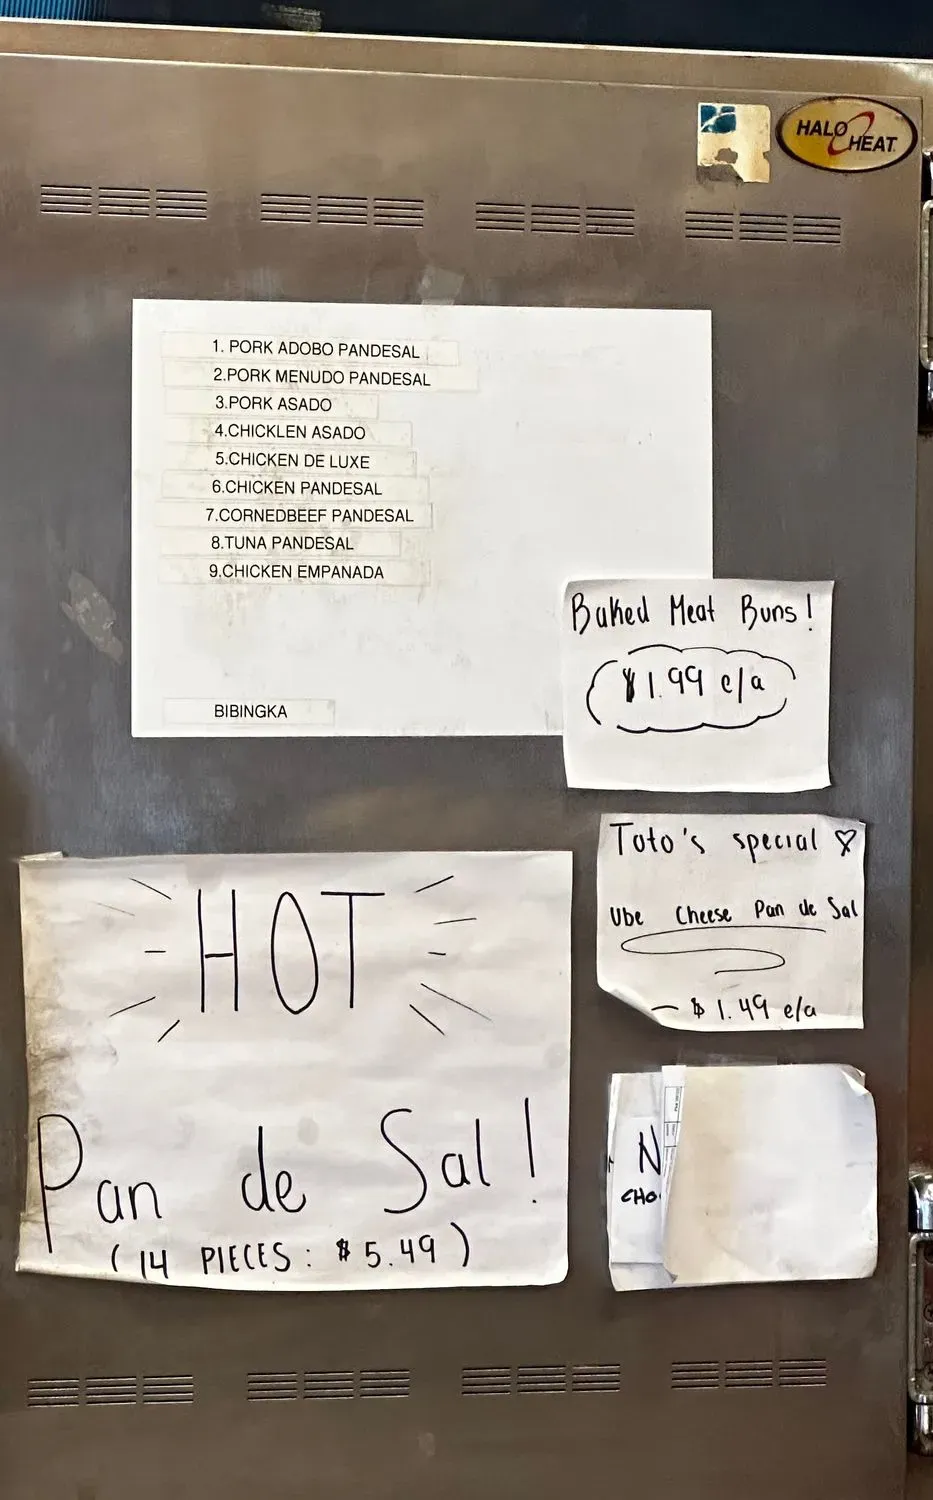 HALO HEAT
1. PORK ADOBO PANDESAL
2.PORK MENUDO PANDESAL
3.PORK ASADO
4.CHICKLEN ASADO
5.CHICKEN DE LUXE
6.CHICKEN PANDESAL
7.CORNEDBEEF PANDESAL
8.TUNA PANDESAL
9.CHICKEN EMPANADA
BIBINGKA
Baked Meat Buns!
$1.99 e/a
Toto's special
Ube Cheese Pan de Sal
- $1.49 e/a
HOT
Pan de Sal!
(14 PIECES: $5.49)
N
CHO